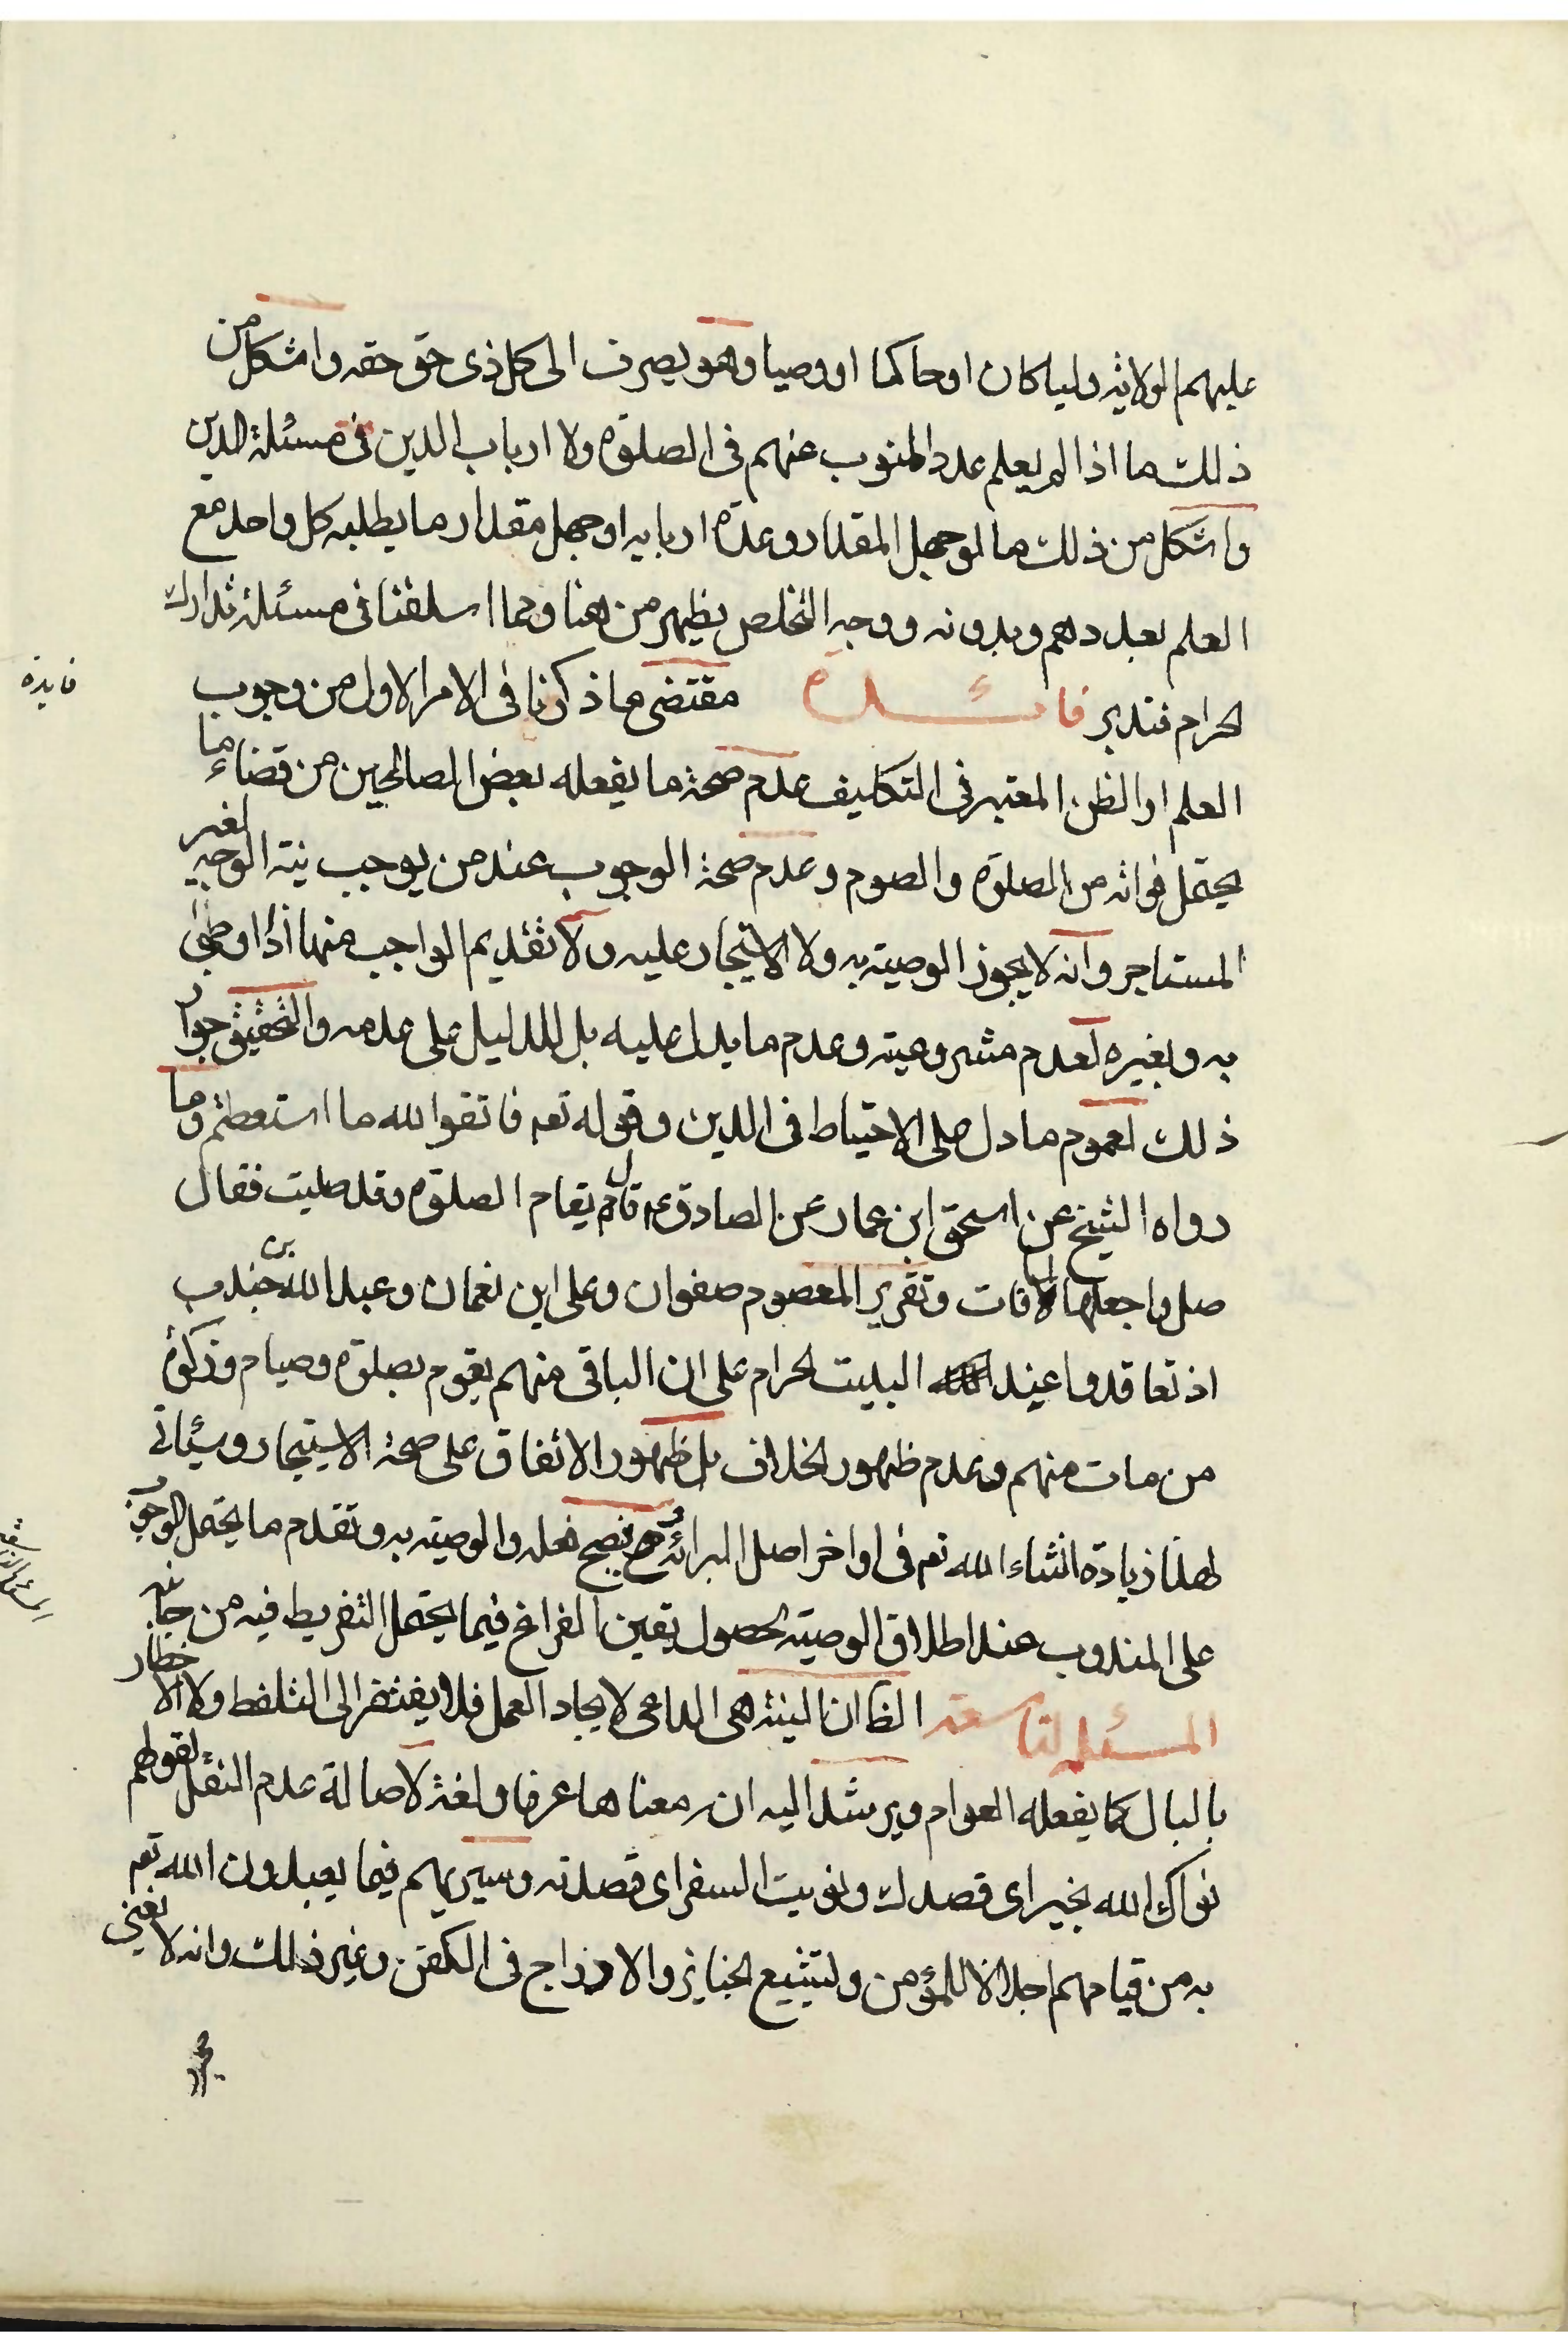 عليهم الولاية وليا كان او حاكما او وصيا وهو يصرف الى كل ذى حق حقه واشكل من
ذلك ما اذا لم يعلم عدد المنوب عنهم فى الصلوة ولا ارباب الدين فى مسئلة الدين
واشكل من ذلك ما لو جهل المقدار وعدة اربابه او جهل مقدار ما يطلبه كل واحد مع
العلم بعددهم وبدونه ووجه التخلص يظهر من هنا ومما اسلفنا فى مسئلة تدارك
الحرام فتدبر فائدة مقتضى ما ذكرنا فى الامر الاول من وجوب
فايدة
العلم او الظن المعتبر فى التكليف عدم صحة ما يفعله بعض الصالحين من قضاء ما
يحتمل فواته من الصلوة والصوم وعدم صحة الوجوب عند من يوجب نية الوجه لغير
المستاجر وانه لا يجوز الوصية به ولا الاستيجار عليه ولا تقديم الواجب منهما اذا اوصى
به وبغيره لعدم مشروعيته وعدم ما يدل عليه بل للدليل على عدمه والتحقيق جواز
ذلك لعموم ما دل على الاحتياط فى الدين وقوله تعه فاتقوا الله ما استعطتم وما
رواه الشيخ عن اسحق ابن عمار عن الصادق ع قال تقام الصلوة وقد صليت فقال
صل واجعلها لما فات وتقرير المعصوم صفوان وعلى ابن نعمان وعبد الله بن جندب
اذ تعاقدوا عند البيت الحرام على ان الباقى منهم يقوم بصلوة وصيام وزكوة
من مات منهم وعدم ظهور الخلاف بل ظهور الاتفاق على صحة الاستيجار وسيأتى
لهذا زيادة انشاء الله تعه فى اواخر اصل البرائة فتصح فعله والوصية به وتقدم ما يحتمل الوجوب
على المندوب عند اطلاق الوصية لحصول يقين الفراغ فيما يحتمل التفريط فيه من جانبه
المسئلة التاسعة الظ ان النية هى الداعى لايجاد العمل فلا يفتقر الى التلفظ ولا الاخطار
بالبال كما يفعله العوام ويرشد اليه ان معناها عرفا ولغة لاصالة عدم النقل لقولهم
نواك الله بخير اى قصدك ونويت السفر اى قصدته وسيرتهم فيما يعبدون الله تعه
به من قيامهم اجلالا للمؤمن ولتشييع الجنايز والازدواج فى الكفن وغير ذلك وانه لا نعنى